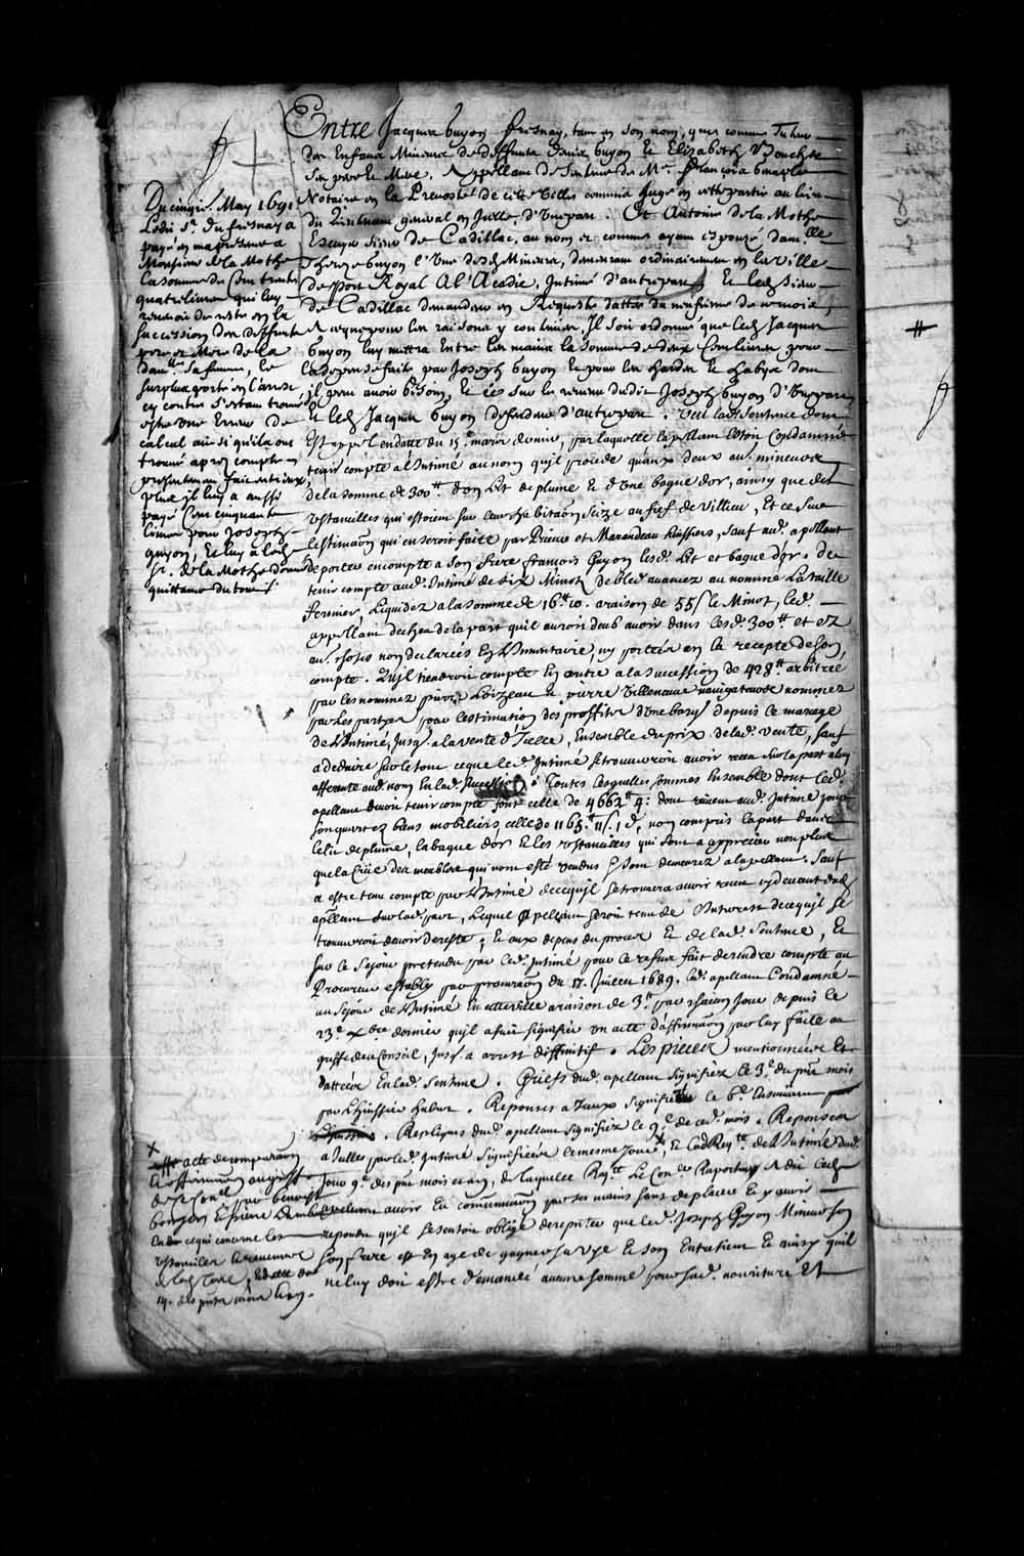 Entre Jacques Guyon fresnay, tant en son nom, que comme Tuteur
des Enfans Mineurs de deffuntz Denis Guyon et Elizabeth Boucher
Ses pere et Mere, Appellant de Sentence de Mr. François Genaple
Notaire en la Prevosté de cette Ville commis Juge en cette partie au lieu
du Lieutenant general en Icelle, d'Unepart. Et Antoine de la Mothe
Escuyer Sieur de Cadillac, au nom et comme ayant espouzé dam.lle
Therese Guyon l'Une desd. Mineurs, demeurant ordinairement en la Ville
de Port Royal A l'Acadie, Intimé d'autrepart, Et led. Sieur
de Cadillac demandeur en Requeste dattée du neufieme de ce mois,
A ce que pour les raisons y contenues, Il soit ordonné que led. Jacques
Guyon luy mettra Entre les mains la somme de deux Cent livres pour
la depense faite par Joseph Guyon et pour les hardes et habys dont
il peut avoir besoin, et ce sur le revenu dudit Joseph Guyon d'Unepart
et led. Jacques Guyon deffendeur d'autrepart. Veu lad. Sentence dont
Est appel en datte du 15.e mars dernier, par laquelle l'appellant estoit Condamné
tenir compte a l'Intimé au nom qu'jl procede qu'aux deux au.
de la somme de 300.tt d'un Lit de plume et d'Une bague d'or, ainsy que des
Ustancilles qui estoient sur l'habitaon Seize au fief de Villieu, Et ce Sur
l'estimaon qui en seroit faite par Prieur et Marandeau huissiers, Sauf aud. apellant
de porter en compte a Son frere françois Guyon lesd. Lit et bague d'or. de
tenir compte aud. Intimé de six Minots de bled avancez au nommé Lataille
fermier, Liquidez a la somme de 16.tt 10. a raison de 55s le Minot, led.
appellant decheu de la part qu'il auroit deub avoir dans lesd. 300.tt et ez
au. choses non declarées En l'Inventaire, ny portées en la recepte de son
compte. Qu'jl tiendroit compte En outre a la Succession de 428.tt arbitrée
par les nommez pierre Loizeau et pierre Villeneuve navigateurs nommez
par Les partyes pour l'estimation des proffits d'Une barq. depuis le mariage
de l'Intimé, Jusq. a la vente d'Icelle, Ensemble du prix de lad. vente, Sauf
a deduire sur le tout ce que led. Intimé se trouveroit avoir receu sur la part a luy
afferante aud. nom En lad. Succession. Toutes lesquelles sommes Ensemble dont led.
apellant devoit tenir compte font celle de 4662.tt 4: dont revient aud. Intimé pour
son quart ez biens mobiliers celle de 1165.tt 11s. 1d, non compris la part dans
le lit de plume, la bague d'or et les Ustancilles qui sont a apprecier non plus
que la des meubles qui n'ont esté vendus et sont demeurez a l'apellant. Sauf
a estre tenu compte par l'Intimé de ce qu'jl se trouvera avoir receu cy devant dud.
apellant sur lad. part, Lequel apellant seroit tenu de l'Interest de ce qu'jl se
trouveroit devoir de reste, et aux depens du procez et de lad. Sentence, Et
sur le Sejour pretendu par led. Intimé pour le refus fait de rendre compte au
Procureur estably par procuraon du 17. Juillet 1689. led. apellant Condamné
au Sejour de l'Intimé En cette ville a raison de 3.tt par chacun Jour depuis le
23.e Xbre dernier qu'jl a fait signiffier un acte d'affirmaon par luy faite au
greffe de ce Conseil, Jusq. a arrest diffinitif. Les pieces mentionnées et
dattées En lad. Sentence. Griefs dud. apellant Signifiez le 3.e du pnt mois
par l'huissier hubert. Reponses a Iceux Signifiées le 6.e Ensuivant
. Repliques dud. apellant signifiez le 9.e de ced. mois. Reponses
a Icelles par led. Intimé Signifiées le mesme Jour X, Et lad. Req.te de l'Intimé dud.
Jour 9.e des pnt mois et an, de laquelle Req.te Le Con.er Raporteur A dit led.
avoir Eu communicaon par ses mains sans deplacer et y avoir
repondu qu'jl se sentoit obligé de reputer que led. Joseph Guyon Mineur son
son frere est En age de gagner sa vye et son Entretien et ainsy qu'il
ne luy doit estre demandé aucune somme pour sad. nouriture Et
Du cinqie. May 1691
Ledit Sr. du fresnay a
payé en ma presence a
Monsieur de la Mothe
la somme de Cent trente
quatre livres qui luy
revenoit de reste en la
succession des deffunts
pere et Mere de la
dam.lle sa femme, le
surplus porté en l'arrest
cy contre s'estant trouvé
estre une Erreur de
calcul ainsi qu'ils ont
trouvé apres compte
presentement fait entr'eux,
plus il luy a aussi
payé Cent cinquante
livres pour Joseph
guyon, Et luy a led.
Sr. de la Mothe donné
quittance du tout
X
acte de comparaon
et affirmaon au greffe
de ce Conel par
En ce qui concerne les
Ustancilles et revenus
de lad. Terre, Ced. de
14. des pnts mois et an.